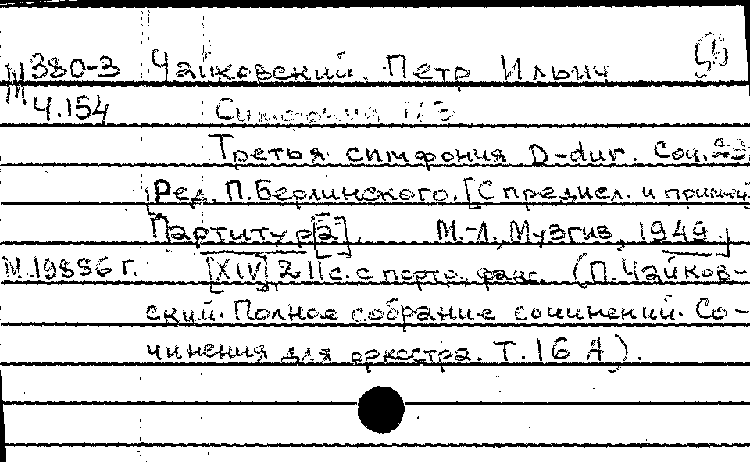 М 380-3 Чайковский, Петр Ильич
Ч.154 Симфония №3
Третья симфония D-dur. Соч.
Ред. П. Берлинского. [С предисл. и примеч.
Партитур[а]. М.-Л., Музгиз, 1949.]
М.19886 г. [XIV] 211 с. с портр. факс. (П. Чайков-
ский. Полное собрание сочинений. Со-
чинения для оркестра. Т. 16 А).